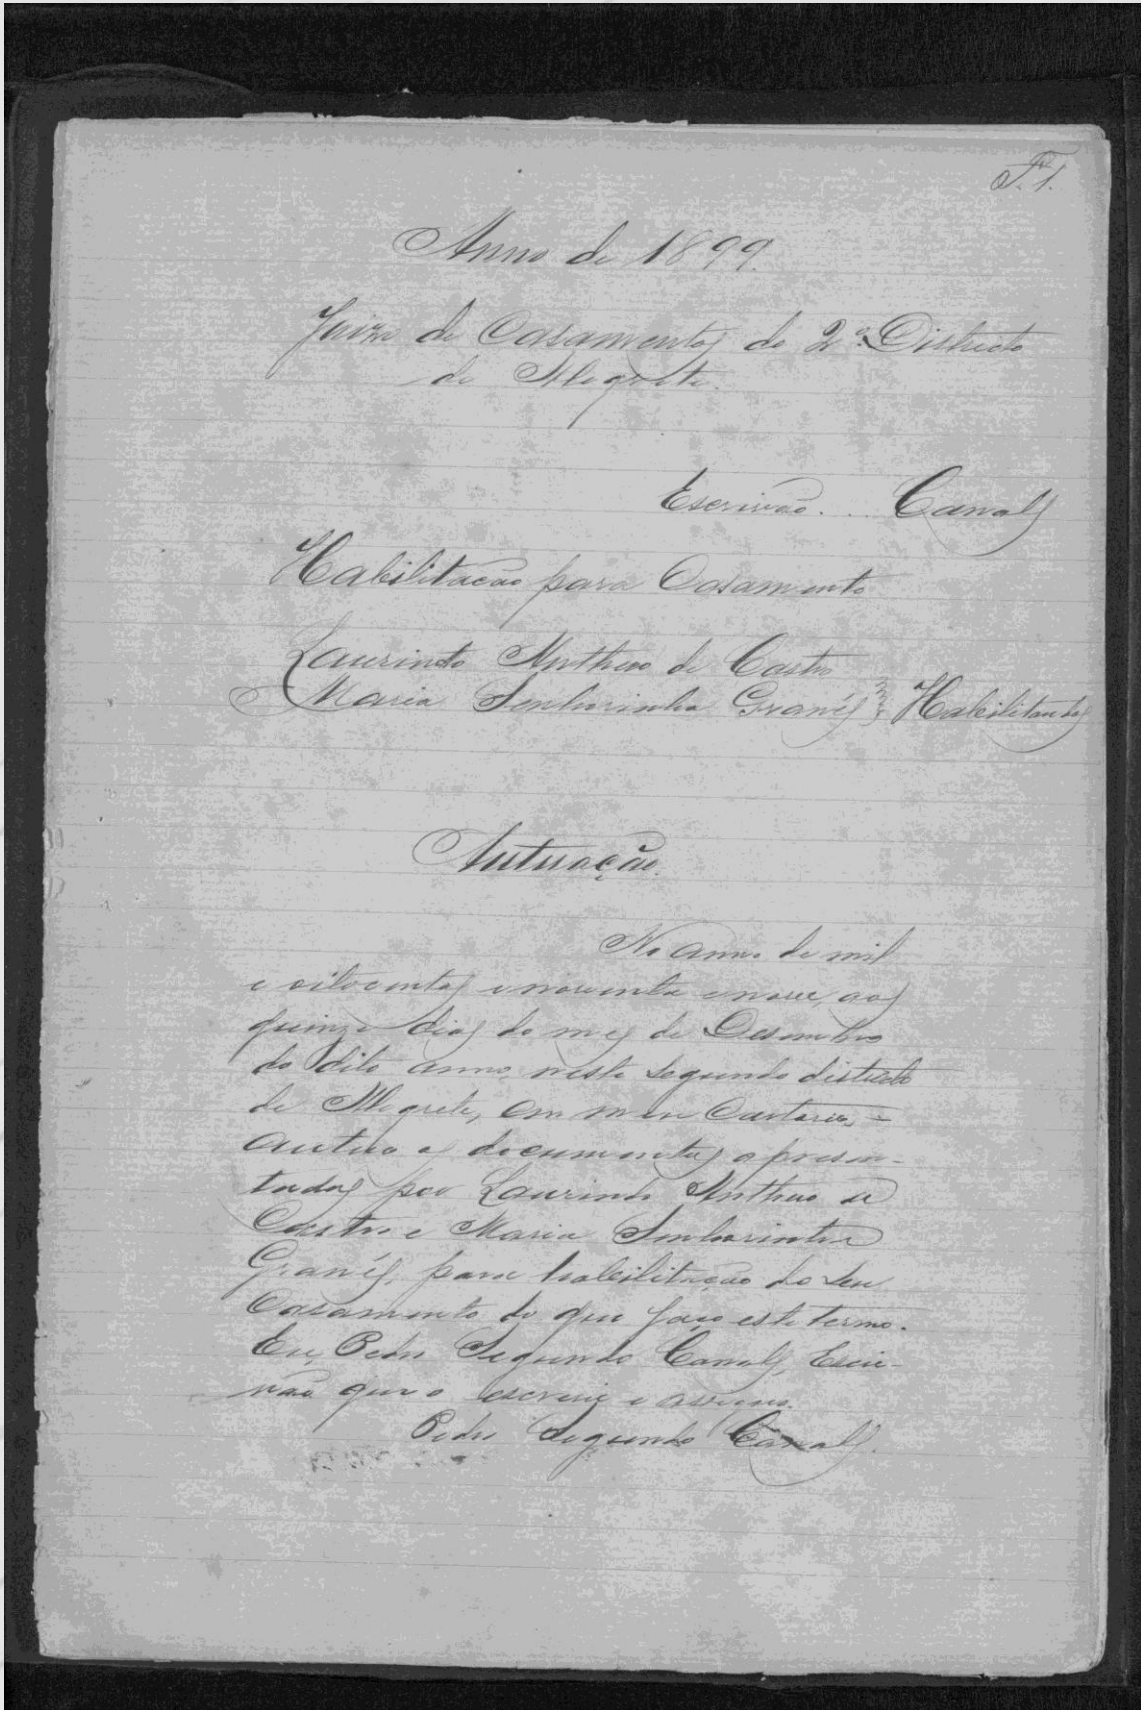 F. 1.
Anno de 1899.
Juizo de Casamentos do 2º Districto
de Alegrete.
Escrivão. . . Canals
Habilitação para Casamento
Laurindo Anthero de Castro
Maria Senhorinha Granés Habilitandos
Autuação.
No anno de mil
e oitocentos e noventa e nove, aos
quinze dias do mes de Desembro
do dito anno, neste segundo districto
de Alegrete, em meu Cartorio,
autuo os documentos apresen-
tados por Laurindo Anthero de
Castro e Maria Senhorinha
Granés, para habilitação do seu
Casamento do que faço este termo.
Eu, Pedro Segundo Canals, Escri-
vão que o escrevi e assigno.
Pedro Segundo Canals.